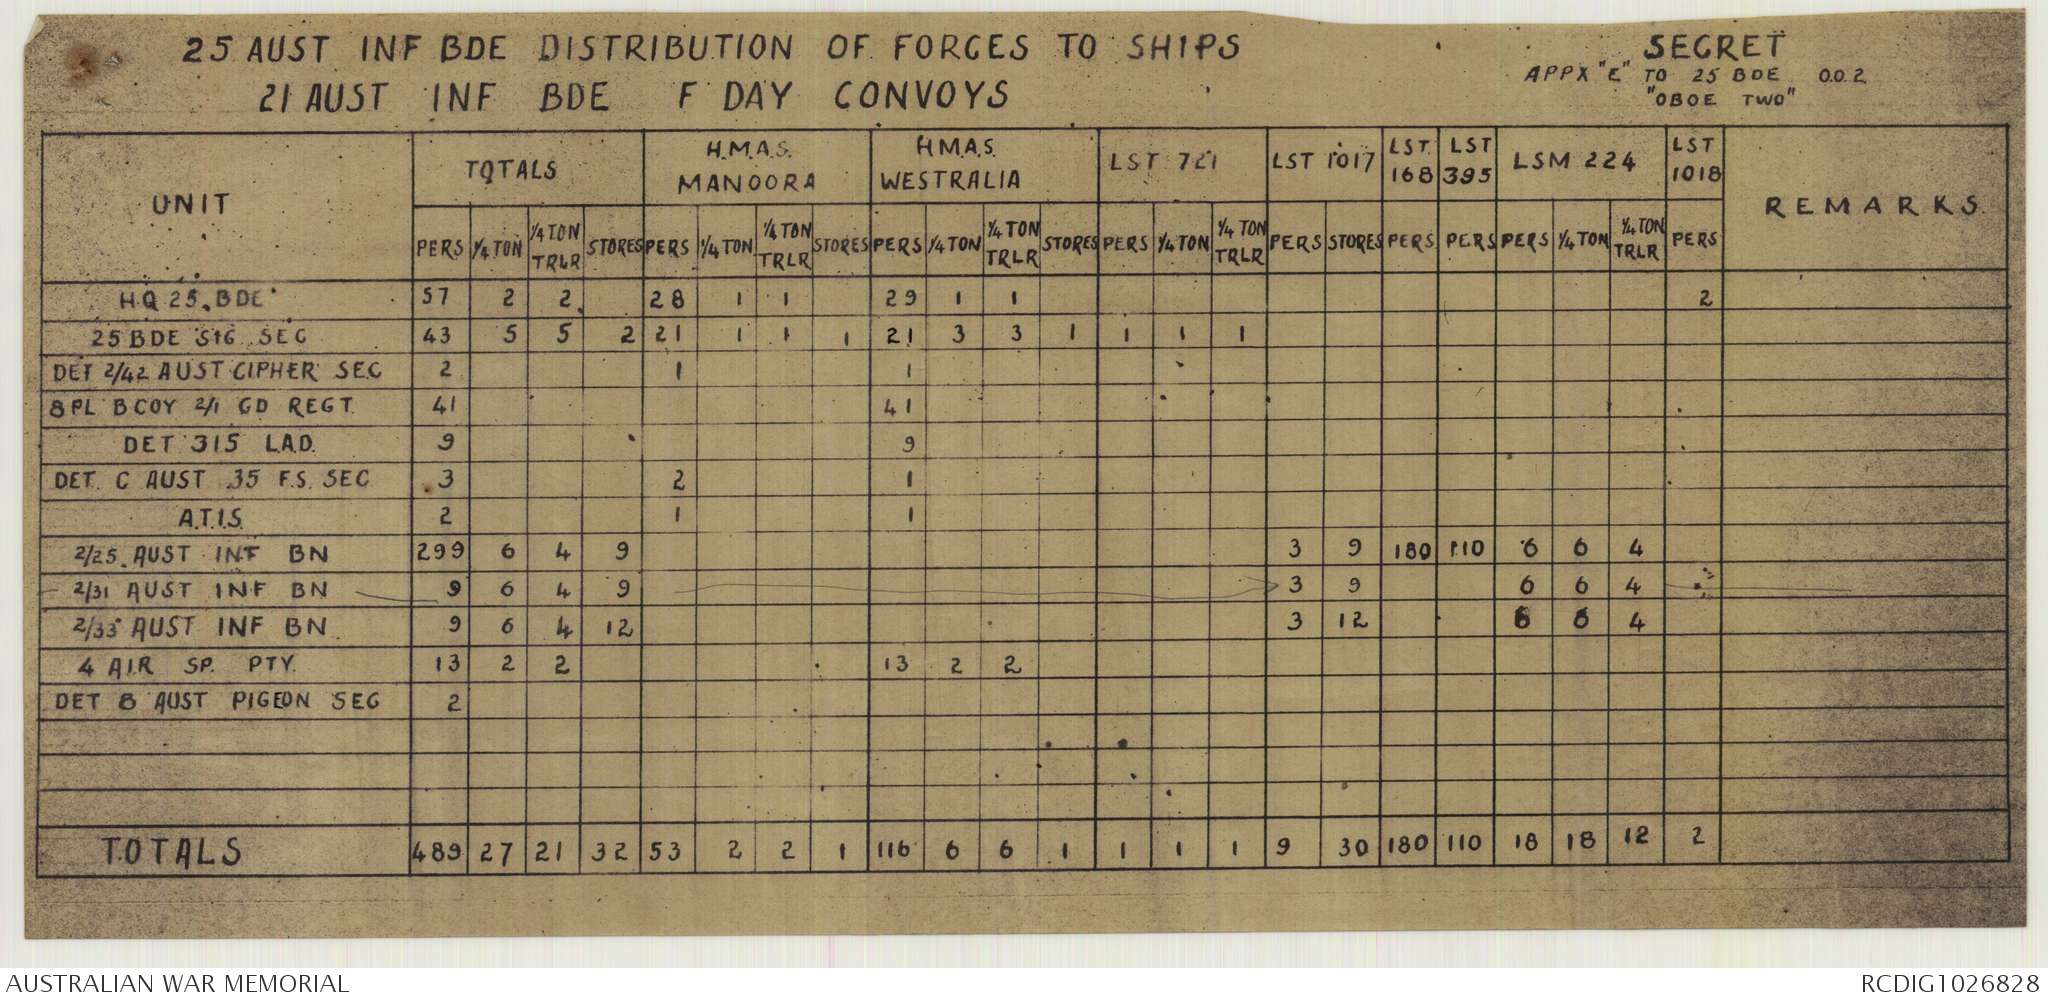 25 AUST INF BDE DISTRIBUTION OF FORCES TO SHIPS
21 AUST INF BDE F DAY CONVOYS
SECRET
APPX "E" TO 25 BDE O.O.2
"OBOE TWO"
UNIT TOTALS H.M.A.S. MANOORA H.M.A.S. WESTRALIA LST 721 LST 1017 LST 168 LST 395 LSM 224 LST 1018 REMARKS
PERS 1/4 TON 1/4 TON TRLR STORES PERS 1/4 TON 1/4 TON TRLR STORES PERS 1/4 TON 1/4 TON TRLR STORES PERS 1/4 TON 1/4 TON TRLR PERS STORES PERS PERS PERS 1/4 TON 1/4 TON TRLR PERS
HQ 25 BDE 57 2 2 28 1 1 29 1 1 2
25 BDE SIG SEC 43 5 5 2 21 1 1 1 21 3 3 1 1 1 1
DET 2/42 AUST CIPHER SEC 2 1 1
8 PL B COY 2/1 GD REGT. 41 41
DET 315 L.A.D. 9 9
DET. C AUST 35 F.S. SEC 3 2 1
A.T.I.S. 2 1 1
2/25 AUST INF BN 299 6 4 9 3 9 180 110 6 6 4
2/31 AUST INF BN 9 6 4 9 3 9 6 6 4
2/33 AUST INF BN 9 6 4 12 3 12 6 6 4
4 AIR SP. PTY. 13 2 2 13 2 2
DET 8 AUST PIGEON SEC 2
TOTALS 489 27 21 32 53 2 2 1 116 6 6 1 1 1 1 9 30 180 110 18 18 12 2
AUSTRALIAN WAR MEMORIAL
RCDIG1026828